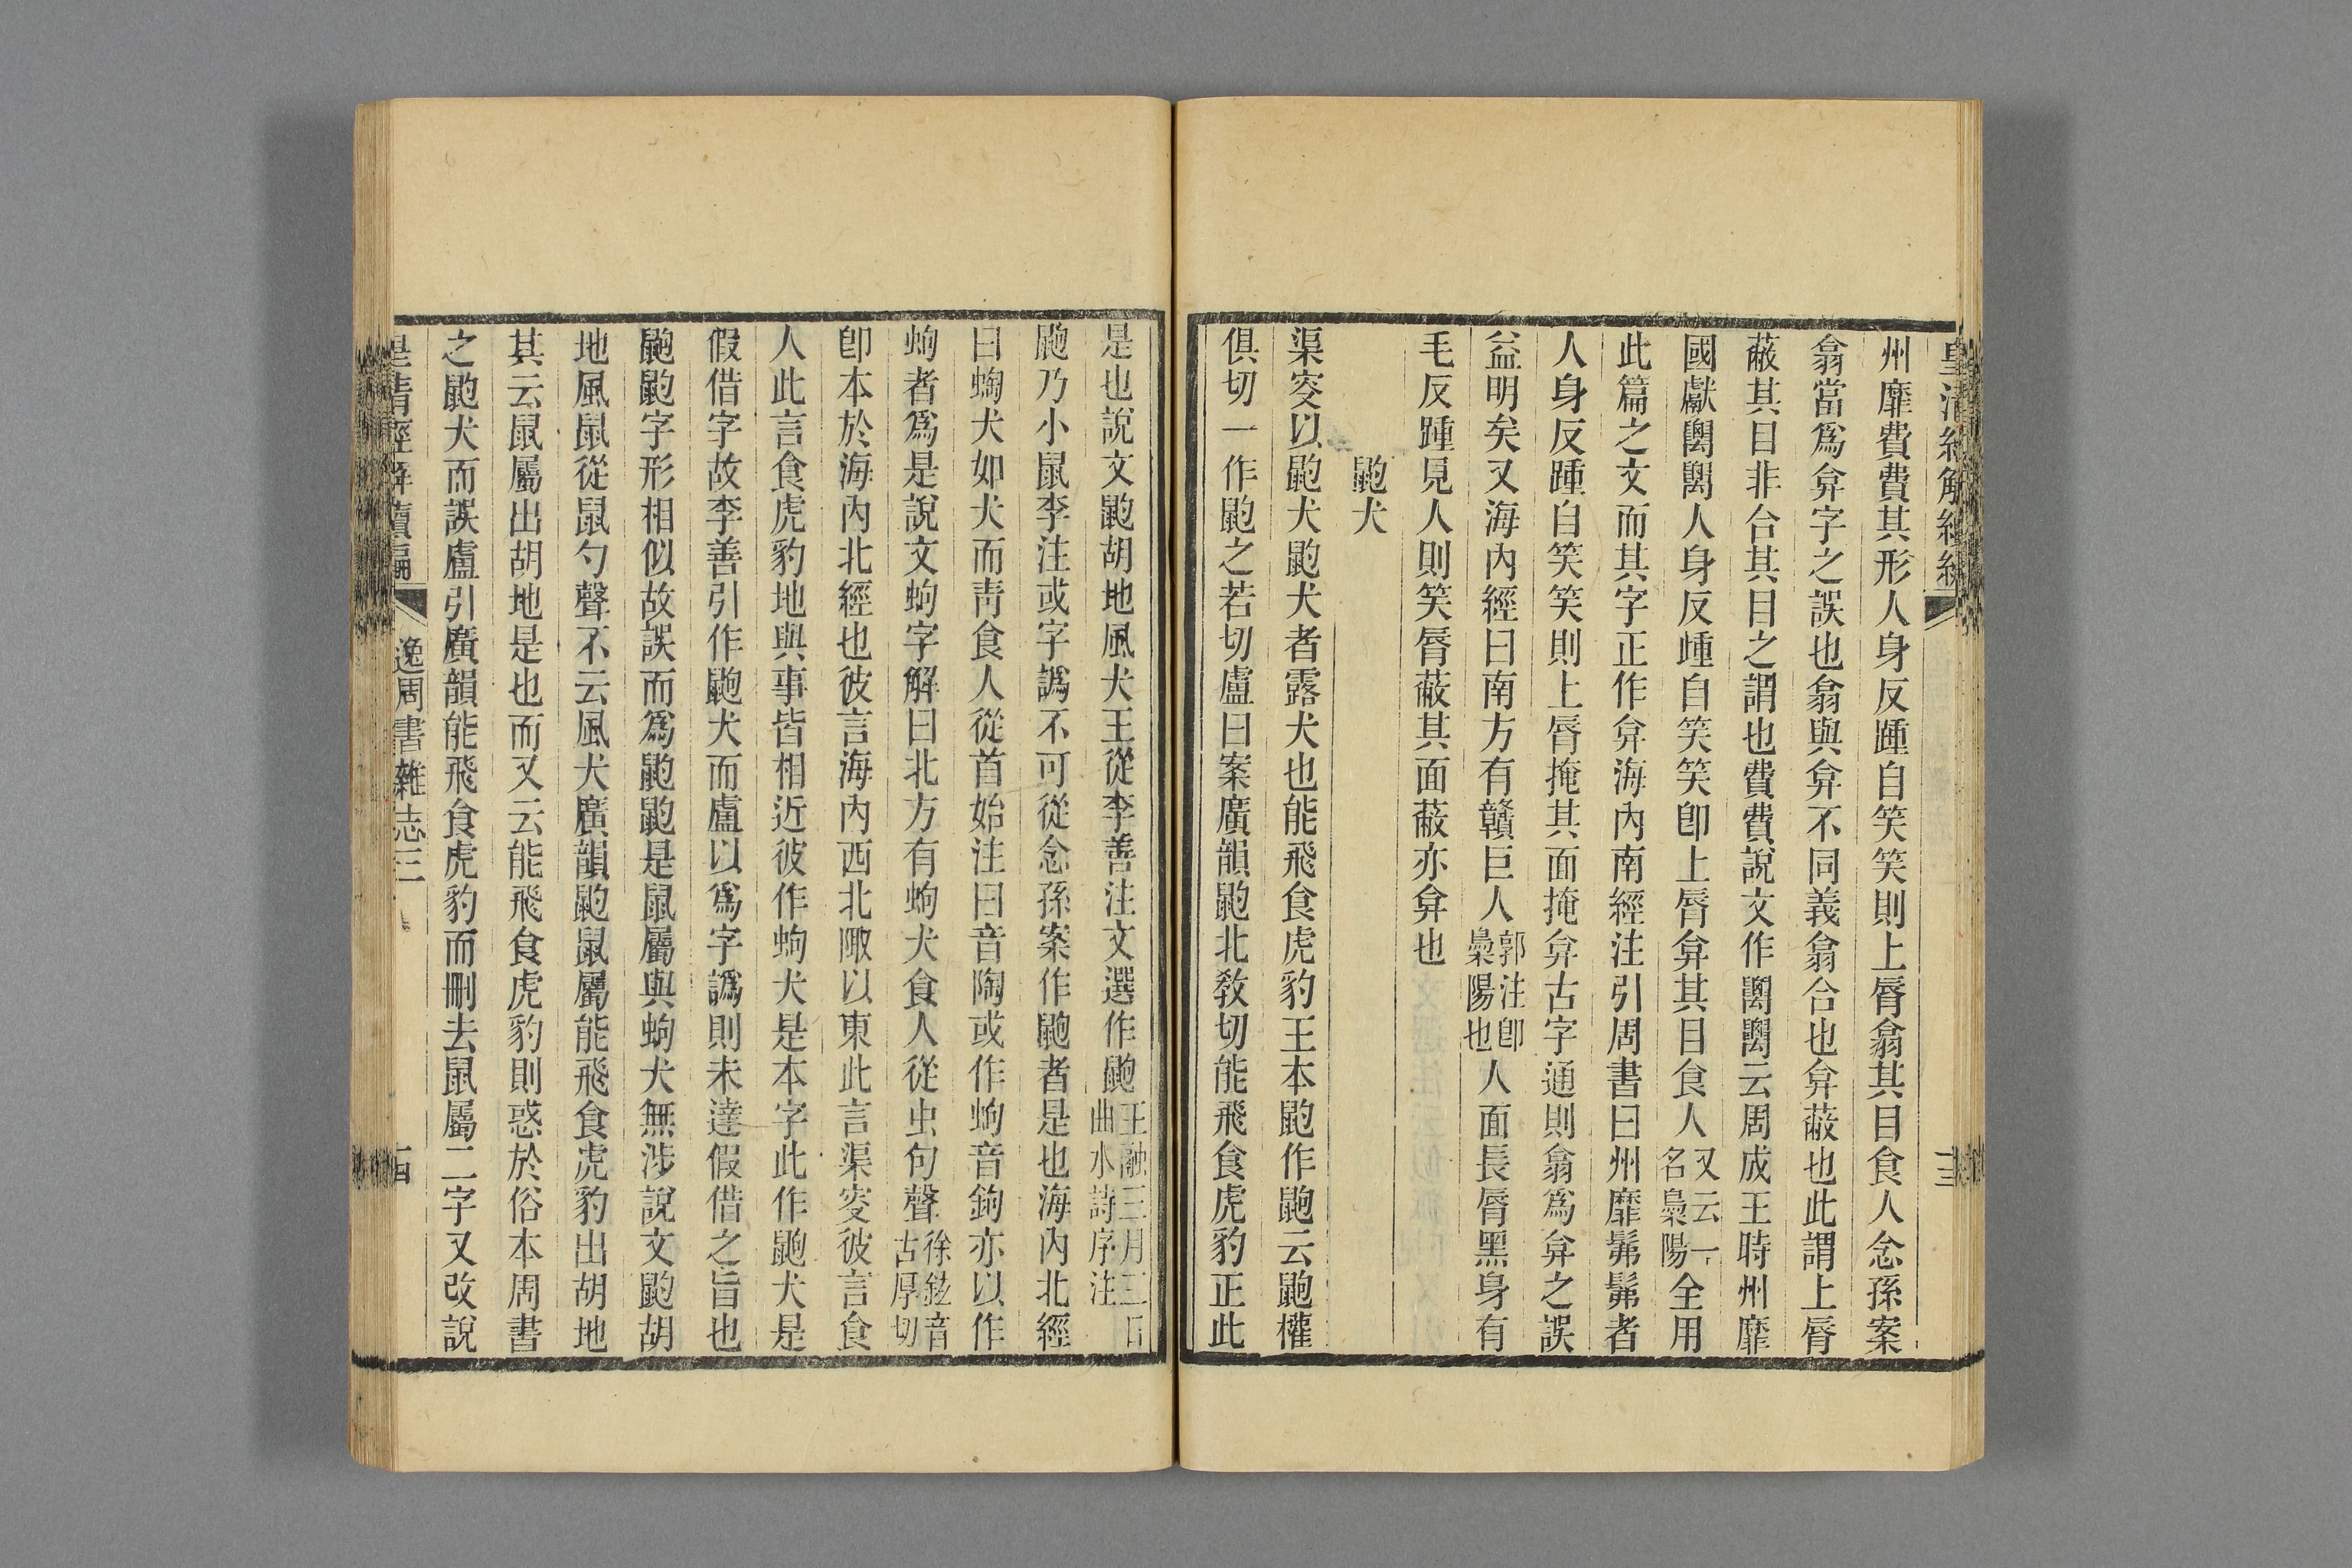 州靡費費其形人身反踵自笑笑則上脣翕其目食人念孫案
翕當爲弇字之誤也翕與弇不同義翕合也弇蔽也此謂上脣
蔽其目非合其目之謂也費費說文作𥝋𥝋云周成王時州靡
國獻𥝋𥝋人身反踵自笑笑卽上脣弇其目食人又云一名梟陽全用
此篇之文而其字正作弇海內南經注引周書曰州靡髴髴者
人身反踵自笑笑則上脣掩其面掩弇古字通則翕爲弇之誤
益明矣又海內經曰南方有贛巨人郭注卽梟陽也人面長脣黑身有
毛反踵見人則笑脣蔽其面蔽亦弇也
鼩犬
渠叟以鼩犬鼩犬者露犬也能飛食虎豹王本鼩作䶂云䶂權
俱切一作鼩之若切盧曰案廣韻鼩北敎切能飛食虎豹正此
是也說文鼩胡地風犬王從李善注文選作䶂王融三月三日曲水詩序注
䶂乃小鼠李注或字譌不可從念孫案作䶂者是也海內北經
曰蜪犬如犬而靑食人從首始注曰音陶或作蚼音鉤亦以作
蚼者爲是說文蚼字解曰北方有蚼犬食人從虫句聲徐鉉音古厚切
卽本於海內北經也彼言海內西北陬以東此言渠叟彼言食
人此言食虎豹地與事皆相近彼作蚼犬是本字此作䶂犬是
假借字故李善引作䶂犬而盧以爲字譌則未達假借之旨也
䶂鼩字形相似故誤而爲鼩鼩是鼠屬與蚼犬無涉說文鼩胡
地風鼠從鼠勺聲不云風犬廣韻鼩鼠屬能飛食虎豹出胡地
其云鼠屬出胡地是也而又云能飛食虎豹則惑於俗本周書
之鼩犬而誤盧引廣韻能飛食虎豹而刪去鼠屬二字又改說
皇清經解續編 逸周書雜志三